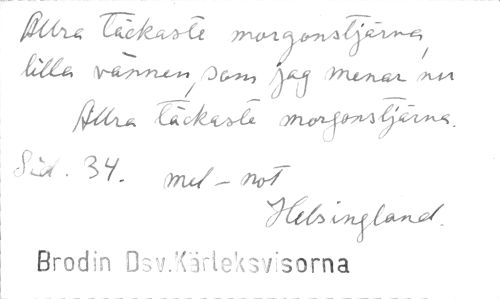 Allra täckaste morgonstjärna,
lilla vännen, som jag menar nu
Allra täckaste morgonstjärna.
Sid. 34. mel - not
Helsingland.
Brodin Dsv.Kärleksvisorna